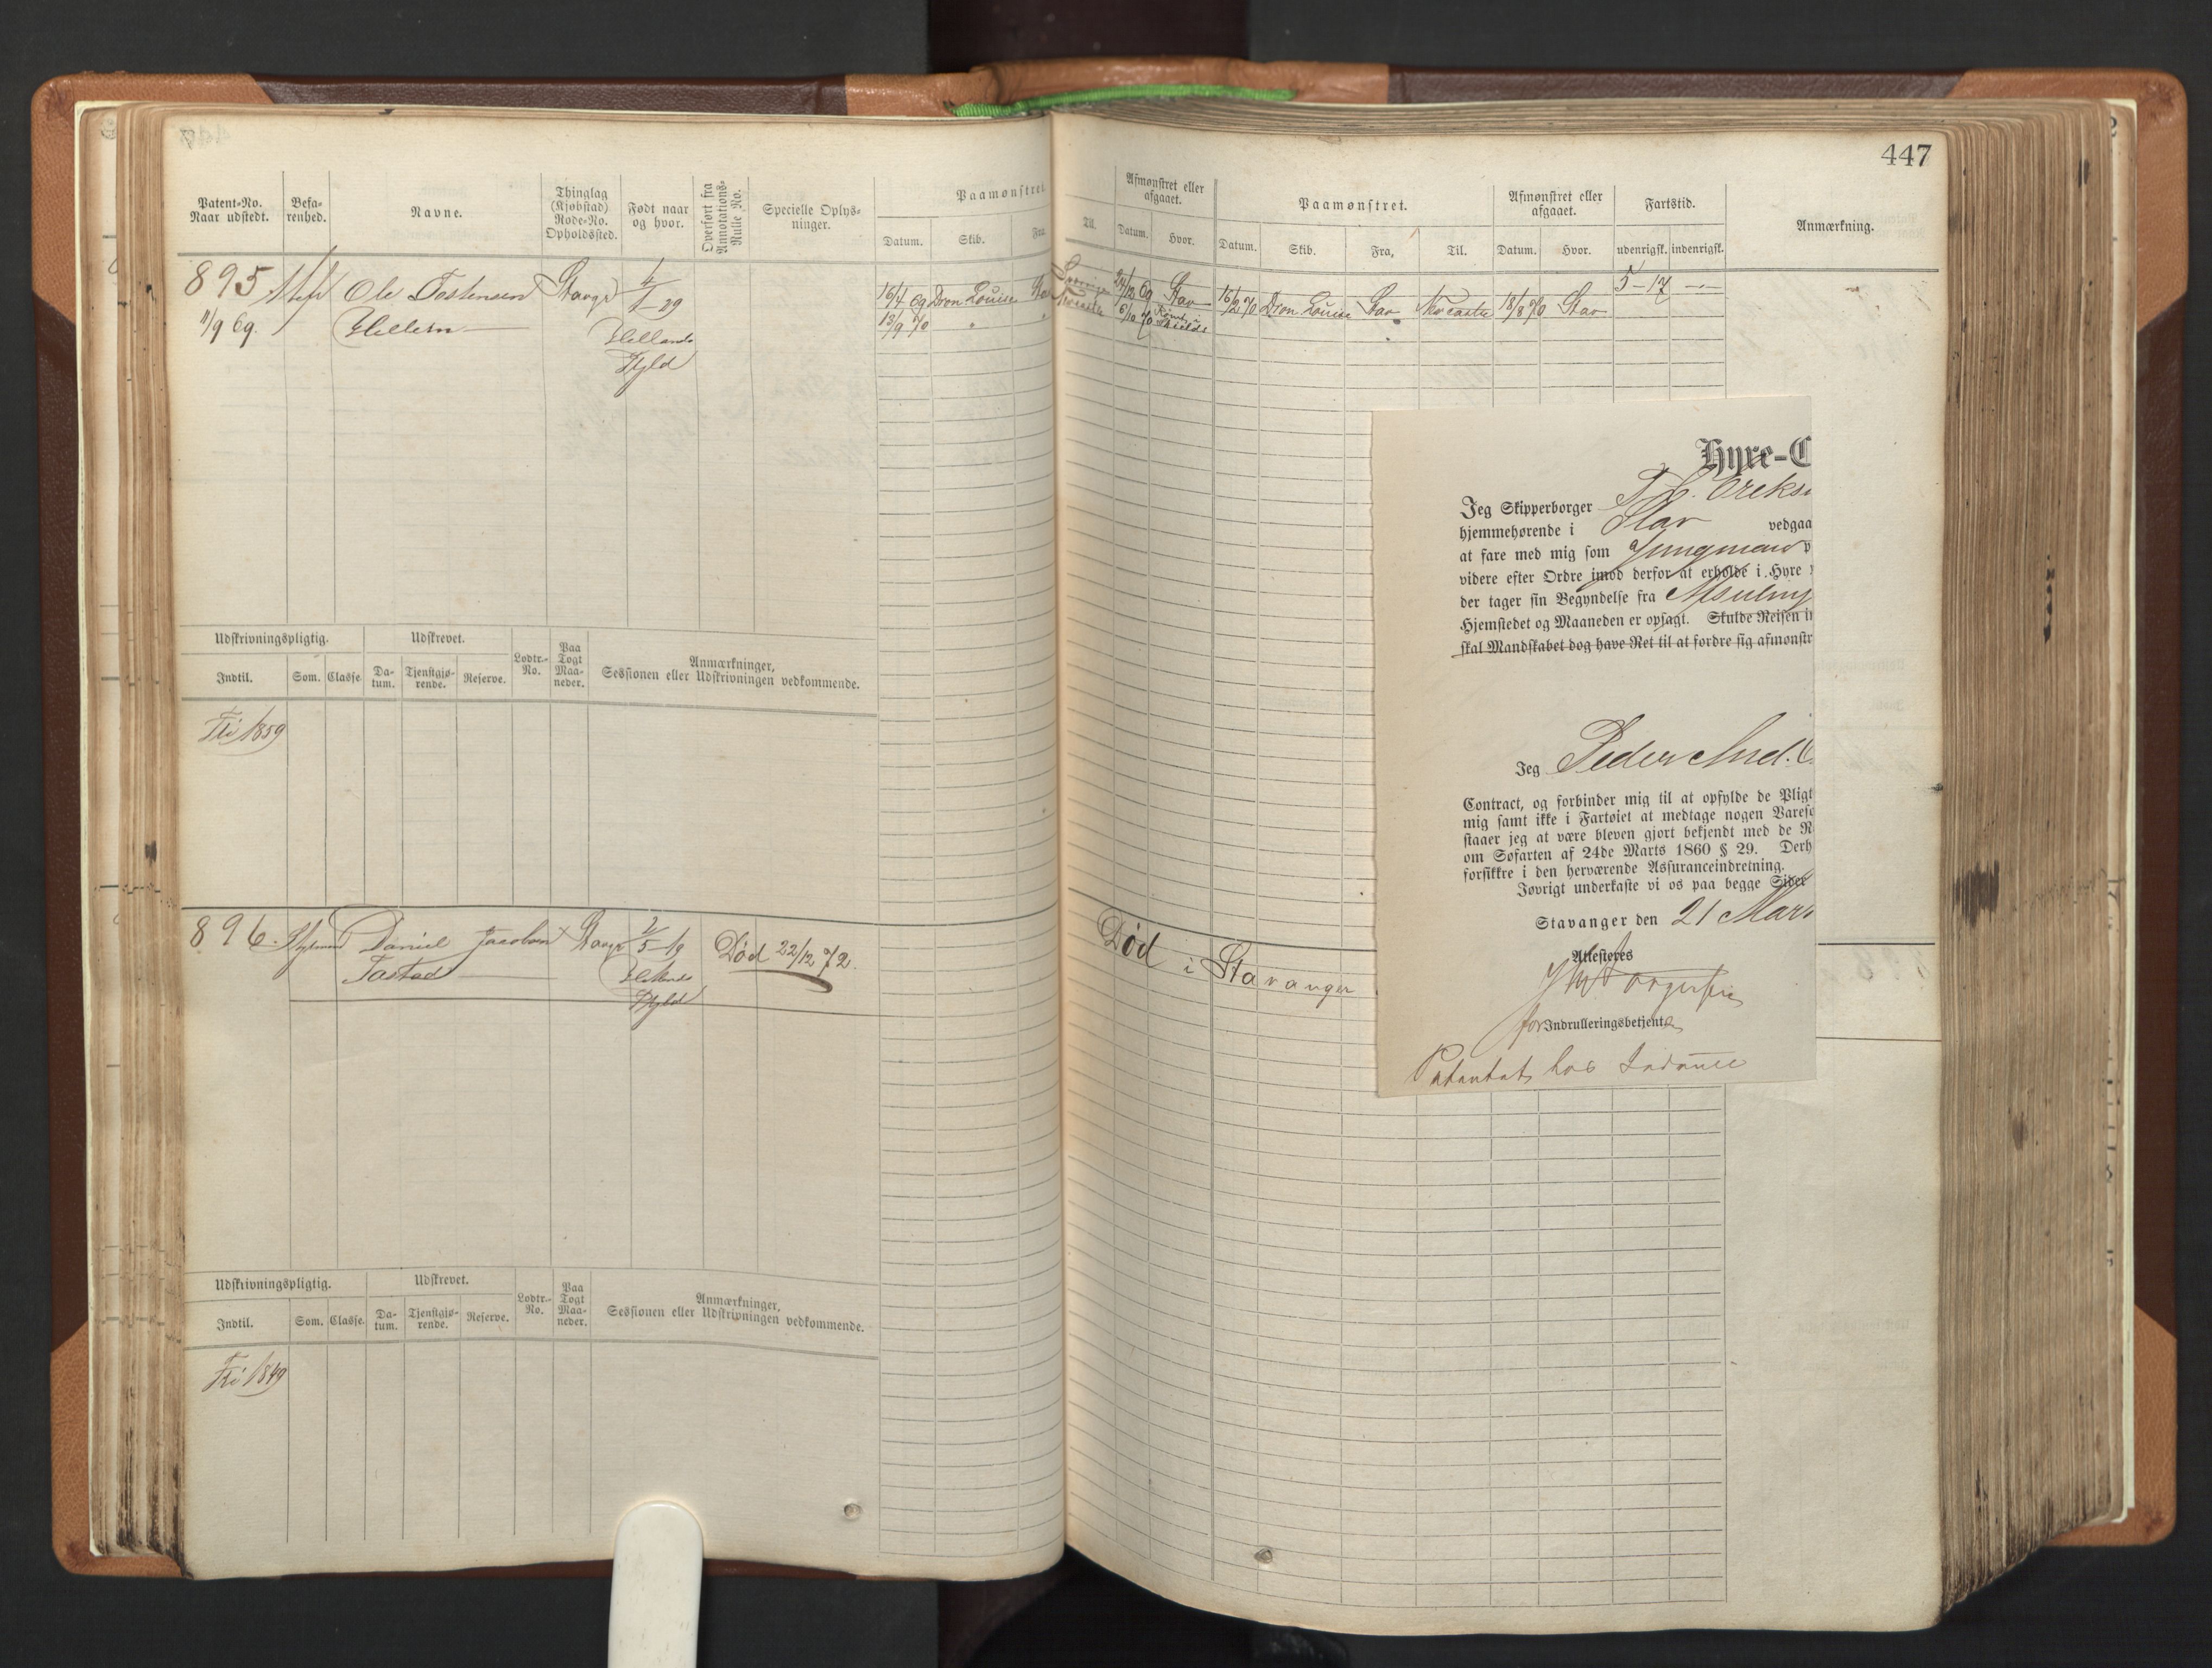 447
Patent-No.
Naar udstedt.
Befa-
renhed.
Navne.
Thinglag
(Kjøbstad)
Rode-No.
Opholdssted.
Født naar
og hvor.
Overført fra
Annotations-
Rulle No.
Specielle Oplys-
ninger.
Paamønstret.
Datum.
Skib.
Fra
Til.
Afmønstret eller
afgaaet.
Datum.
Hvor.
Paamønstret.
Datum.
Skib.
Fra,
Til.
Afmønstret eller
afgaaet.
Datum.
Hvor.
Fartstid.
udenrigsk.
indenrigsk.
Anmærkning.
895
Ole Tostensen
Stavgr
1/1 29
16/4 69 Dron Louise Sta
24/12 69 Stav
16/2 70 Dron Louise Stav Newcastle 18/8 70 Stav
5-17
11/9 69.
Hellands
13/9 70
Newcastle
6/10 70
Shields
Udskrivningspligtig.
Udskrevet.
Lodtr.-
No.
Paa
Togt
Maa-
neder.
Anmærkninger,
Sessionen eller Udskrivningen vedkommende.
Indtil.
Som.
Classe
Da-
tum.
Tjenstgjø-
rende.
Reserve.
Fri 1859
896.
Daniel Jacobsen
Stavgr
2/5 19
Død 22/12 72.
Død i Stavanger
Tastad
Udskrivningspligtig.
Udskrevet.
Lodtr.-
No.
Paa
Togt
Maa-
neder.
Anmærkninger,
Sessionen eller Udskrivningen vedkommende.
Indtil.
Som.
Classe.
Da-
tum.
Tjenstgjø-
rende.
Reserve.
Fri 1849
Hyre-C
Jeg Skipperborger
hjemmehørende i Stav vedgaa
at fare med mig som Jungmand
videre efter Ordre imod derfor at erholde i Hyre
der tager sin Begyndelse fra
Hjemstedet og Maaneden er opsagt. Skulde Reisen i
skal Mandskabet dog have Ret til at fordre sig afmønstr
Jeg Peder And.
Contract, og forbinder mig til at opfylde de Pligt
mig samt ikke i Fartøiet at medtage nogen Varese
staaer jeg at være bleven gjort bekjendt med de R
om Søfarten af 24de Marts 1860 § 29. Derh
forsikkre i den herværende Assuranceindretning.
Iøvrigt underkaste vi os paa begge Sider
Stavanger den 21 Mar
Attesteres
for Indrulleringsbetjent
Patentet hos